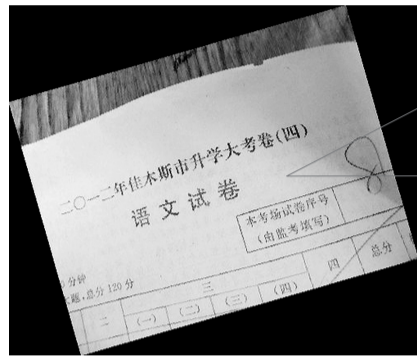 二〇一二年佳木斯市升学大考卷(四)
语文试卷
本考场试卷序号
(由监考填写)
8
分钟
题,总分120分
二
三
四
总分
(一)
(二)
(三)
(四)